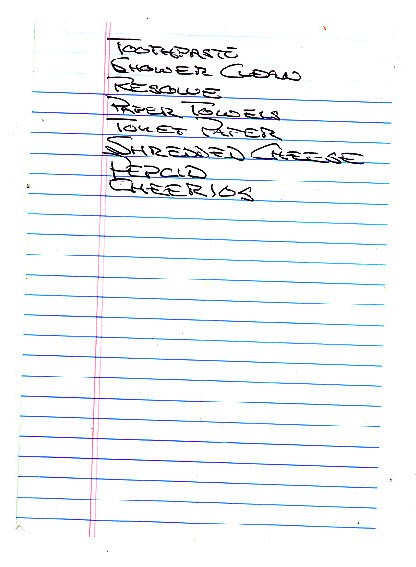 TOOTHPASTE
SHOWER CLEAN
RESOLVE
PAPER TOWELS
TOILET PAPER
SHREDDED CHEESE
PEPCID
CHEERIOS